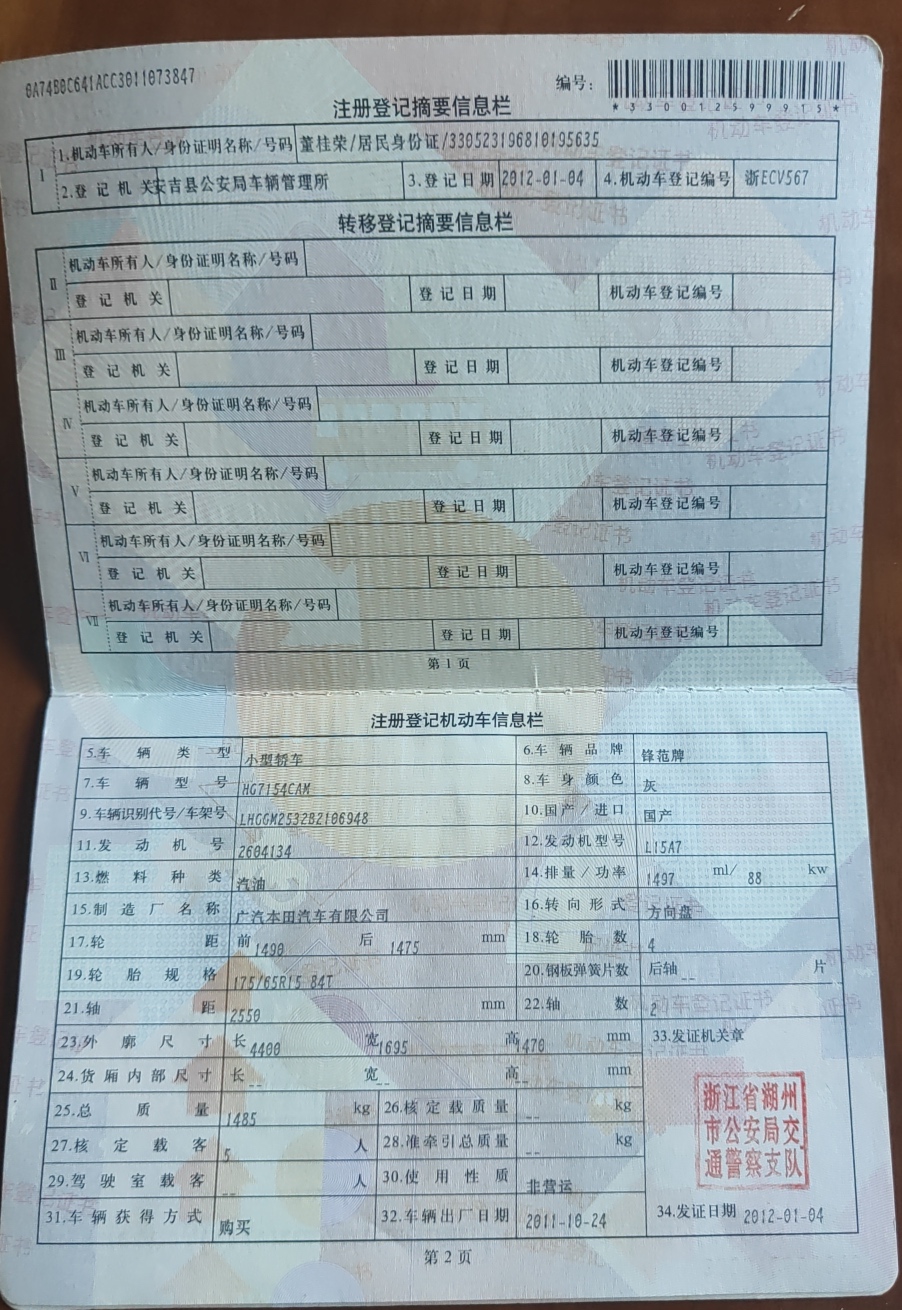 0A74B0C641ACC3011073847
编号：
*330012599915*
注册登记摘要信息栏
Ⅰ 1.机动车所有人/身份证明名称/号码 董桂荣/居民身份证/330523196810195635
2.登记机关 安吉县公安局车辆管理所 3.登记日期 2012-01-04 4.机动车登记编号 浙ECV567
转移登记摘要信息栏
Ⅱ 机动车所有人/身份证明名称/号码
登记机关 登记日期 机动车登记编号
Ⅲ 机动车所有人/身份证明名称/号码
登记机关 登记日期 机动车登记编号
Ⅳ 机动车所有人/身份证明名称/号码
登记机关 登记日期 机动车登记编号
Ⅴ 机动车所有人/身份证明名称/号码
登记机关 登记日期 机动车登记编号
Ⅵ 机动车所有人/身份证明名称/号码
登记机关 登记日期 机动车登记编号
Ⅶ 机动车所有人/身份证明名称/号码
登记机关 登记日期 机动车登记编号
第1页
注册登记机动车信息栏
5.车辆类型 小型轿车 6.车辆品牌 锋范牌
7.车辆型号 HG7154CAM 8.车身颜色 灰
9.车辆识别代号/车架号 LHGGM2532B2106948 10.国产/进口 国产
11.发动机号 2604134 12.发动机型号 L15A7
13.燃料种类 汽油 14.排量/功率 1497 ml/ 88 kw
15.制造厂名称 广汽本田汽车有限公司 16.转向形式 方向盘
17.轮距 前 1490 后 1475 mm 18.轮胎数 4
19.轮胎规格 175/65R15 84T 20.钢板弹簧片数 后轴 -- 片
21.轴距 2550 mm 22.轴数 2
23.外廓尺寸 长 4400 宽 1695 高 1470 mm 33.发证机关章
24.货厢内部尺寸 长 -- 宽 -- 高 -- mm
25.总质量 1485 kg 26.核定载质量 -- kg
浙江省湖州
市公安局交
通警察支队
27.核定载客 5 人 28.准牵引总质量 -- kg
29.驾驶室载客 -- 人 30.使用性质 非营运
31.车辆获得方式 购买 32.车辆出厂日期 2011-10-24 34.发证日期 2012-01-04
第2页